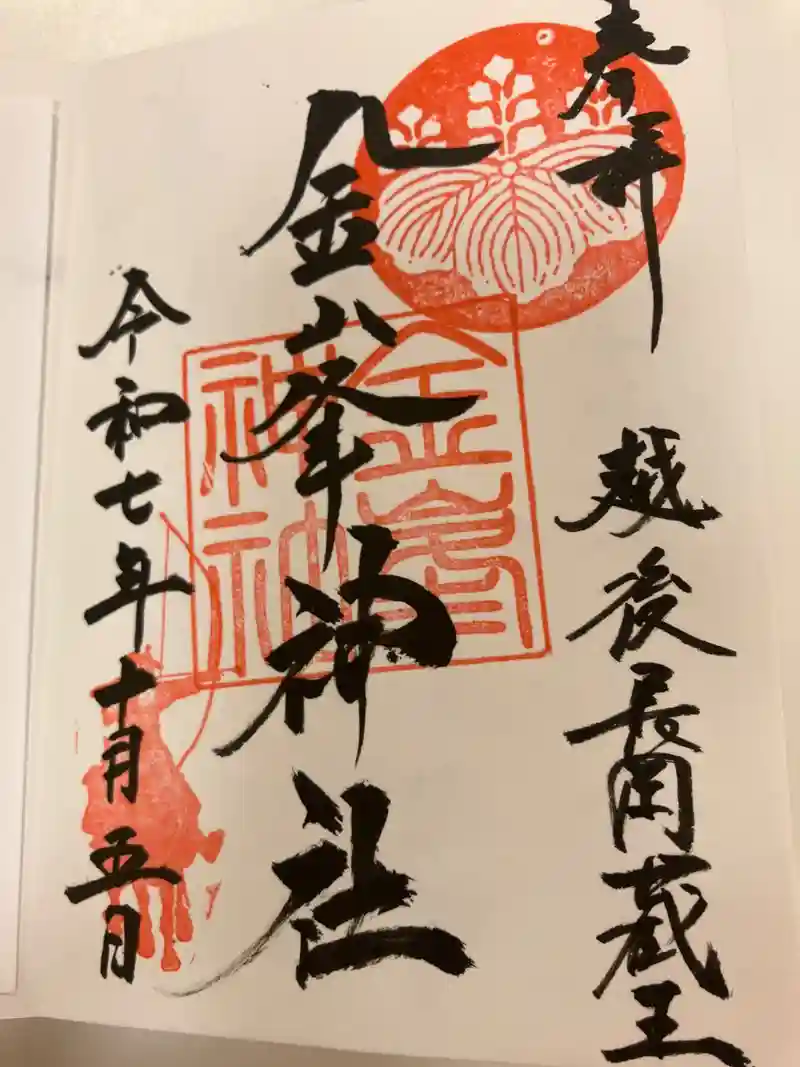 奉拝
越後長岡蔵王
金峯神社
金峯神社
令和七年十月五日